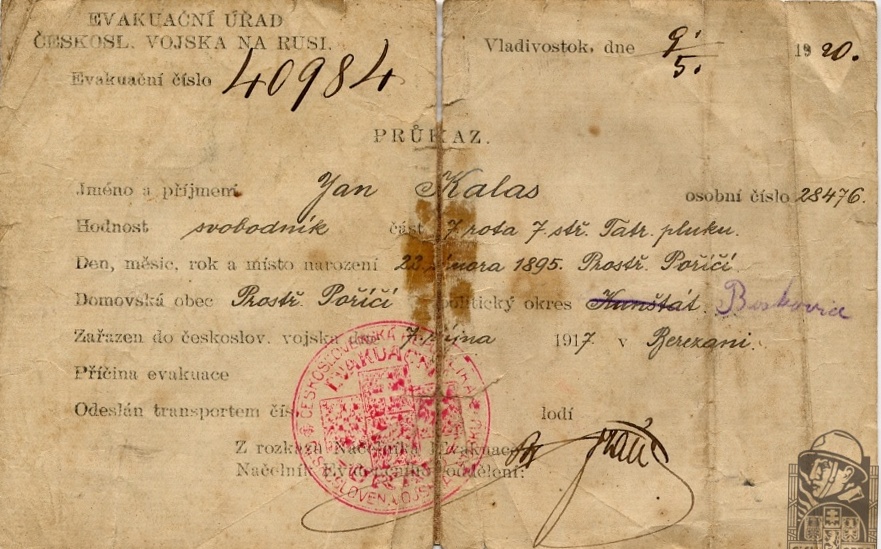 EVAKUAČNÍ ÚŘAD
ČESKOSL. VOJSKA NA RUSI.
Evakuační číslo 40984
Vladivostok, dne 9. 5. 1920.
PRŮKAZ.
Jméno a příjmení Jan Kalas osobní číslo 28476.
Hodnost svobodník část 7 rota 7 stř. Tatr. pluku.
Den, měsíc, rok a místo narození 22. února 1895. Prostř. Poříčí
Domovská obec Prostř. Poříčí politický okres Kunštát. Boskovice
Zařazen do českoslov. vojska dne 7. října 1917 v Berezani.
Příčina evakuace
Odeslán transportem čís. lodí
Z rozkazu Náčelníka Evakuace
Náčelník Evid oddělení:
EVAKUAČNÍ